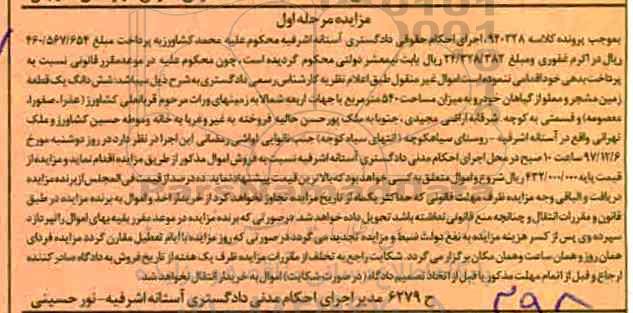 مزایده مرحله اول
بموجب پرونده کلاسه ۹۴۰۳۲۸، اجرای احکام حقوقی دادگستری آستانه اشرفیه محکوم علیه محمد کشاورز به پرداخت مبلغ ۴۶۰/۵۶۷/۶۵۴
ریال در اکرم غفوری و مبلغ ۲۴/۳۲۸/۳۸۲ ریال بابت نیمعشر دولتی محکوم گردیده است، چون محکوم علیه در موعد مقرر قانونی نسبت به
پرداخت بدهی خود اقدامی ننموده است اموال غیر منقول طبق اعلام نظریه کارشناس رسمی دادگستری به شرح ذیل میباشد: شش دانگ یک قطعه
زمین مشجر و مملو از گیاهان خودرو به میزان مساحت ۵۴۰ مترمربع با جهات اربعه شمالا به زمینهای وراث مرحوم قربانعلی کشاورز (عذرا، صغورا،
معصومه) و قسمتی به کوچه. شرقا به اراضی مجیدی، جنوبا به ملک پورحسن حالیه فروخته به غیر و غربا به خانه ومحوطه حسین کشاورز و ملک
تهرانی واقع در آستانه اشرفیه - روستای سیاهکوچه (انتهای سیاه کوچه) جنب نانوایی لواشی رمضانی این اجرا در نظر دارد در روز دوشنبه مورخ
۹۷/۱۲/۶ ساعت ۱۰ صبح در محل اجرای احکام مدنی دادگستری آستانه اشرفیه نسبت به فروش اموال مذکور از طریق مزایده اقدام نماید و مزایده از
قیمت پایه ۴۳۲/۰۰۰/۰۰۰ ریال شروع و اموال متعلق به کسی خواهد بود که بالاترین قیمت پیشنهاد نماید. ده درصد از قیمت فی المجلس از برنده مزایده
دریافت و الباقی وجه مزایده ظرف مهلت قانونی که حداکثر یکماه از تاریخ مزایده تجاوز نخواهد کرد از خریدار اخذ و اموال به برنده مزایده در طبق
قانون و مقررات انتقال و چنانچه منع قانونی نداشته باشد تحویل داده خواهد شد. در صورتی که برنده مزایده در موعد مقرر بقیه بهای اموال را نپردازد
سپرده وی پس از کسر هزینه مزایده به نفع دولت ضبط و مزایده تجدید می گردد در صورتی که روز مزایده با ایام تعطیل مقارن گردد مزایده فردای
همان روز و همان ساعت و همان مکان برگزار می گردد. شکایت راجع به تخلف از مقررات مزایده ظرف یک هفته از تاریخ فروش به دادگاه صادر کننده
ارجاع و قبل از اتمام مهلت مذکور یا قبل از اتخاذ تصمیم دادگاه (در صورت شکایت) اموال به خریدار انتقال نخواهد شد.
ح ۶۲۷۹ مدیر اجرای احکام مدنی دادگستری آستانه اشرفیه - نور حسینی